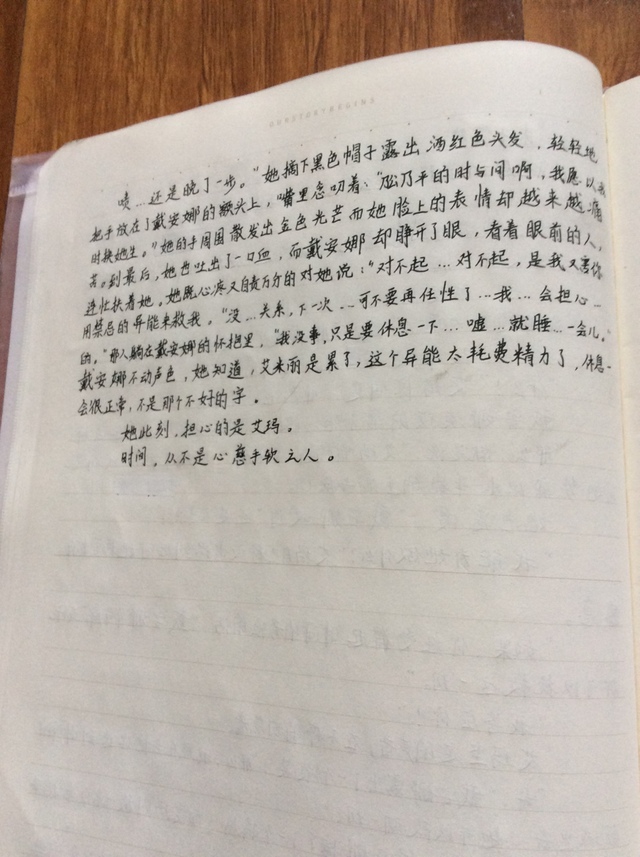 唉...还是晚了一步。"她摘下黑色帽子露出酒红色头发，轻轻地
把手放在了戴安娜的额头上，嘴里念叨着："公平的时与间啊，我愿以我
时换她生。"她的手周围散发出金色光芒而她脸上的表情却越来越痛
苦。到最后，她也吐出了一口血，而戴安娜却睁开了眼，看着眼前的人，
连忙扶着她。她既心疼又自责万分的对她说："对不起...对不起，是我又害你
用禁忌的异能来救我。"没...关系，下一次...可不要再任性了...我...会担心
的。"那人躺在戴安娜的怀抱里，"我没事，只是要休息一下...嘘...就睡...一会儿。"
戴安娜不动声色，她知道，艾米丽是累了，这个异能太耗费精力了，休息
会很正常，不是那个不好的字。
她此刻，担心的是艾玛。
时间，从不是心慈手软之人。